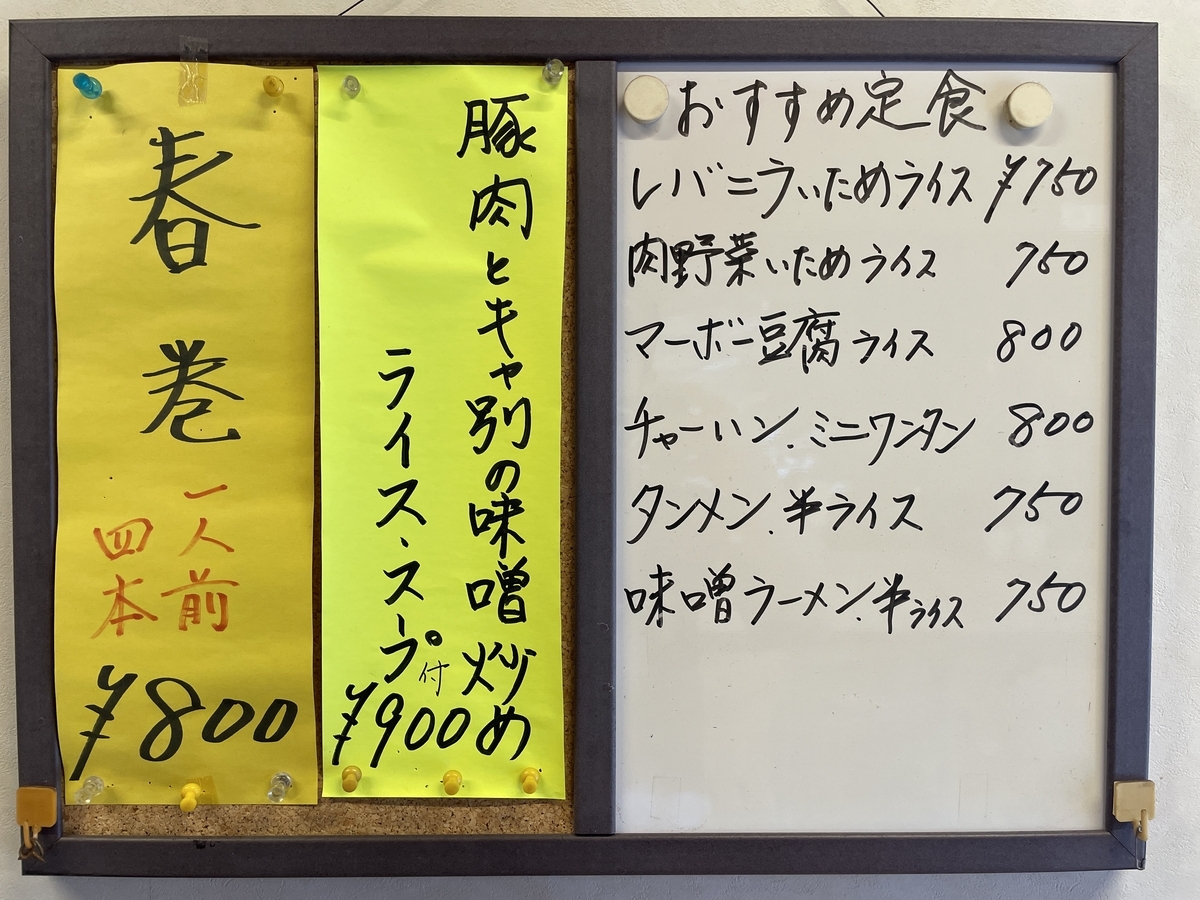 春巻
一人前
四本
¥800
豚肉とキャ別の味噌炒め
ライス、スープ付
¥900
おすすめ定食
レバニラいためライス ¥750
肉野菜いためライス 750
マーボー豆腐ライス 800
チャーハン.ミニワンタン 800
タンメン.半ライス 750
味噌ラーメン.半ライス 750